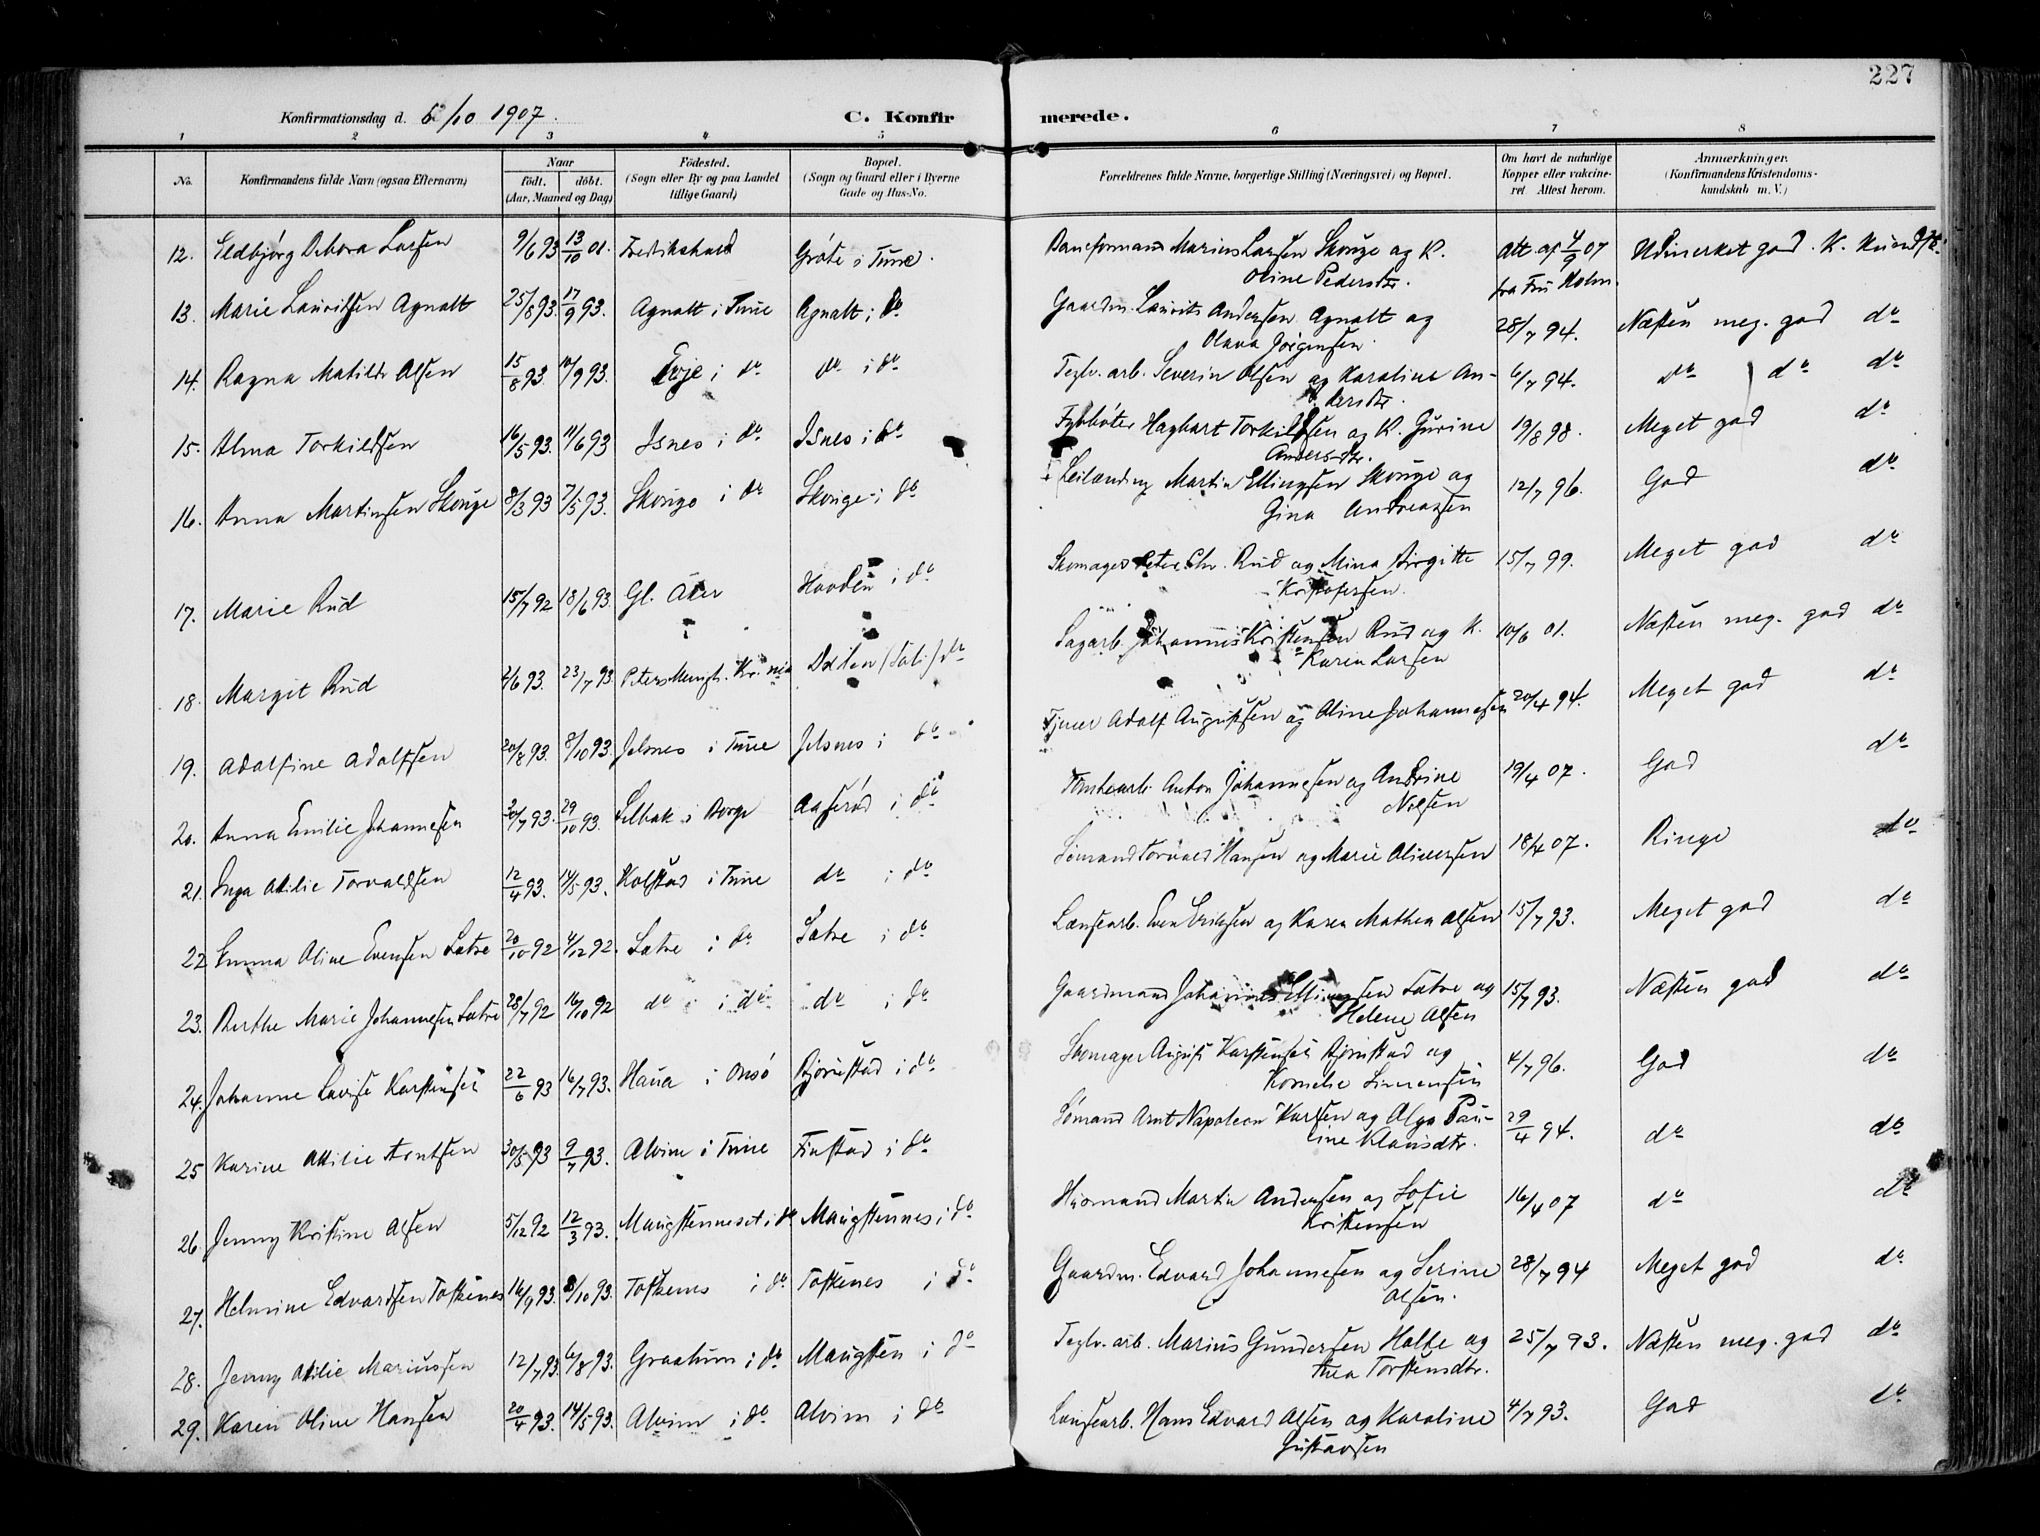 227
Konfirmationsdag d. 6/10 1907.
C. Konfirmerede.
1 2 3 4 5 6 7 8
No. Konfirmandens fulde Navn (ogsaa Efternavn) Naar födt. döbt. (Aar, Maaned og Dag) Födested. (Sogn eller By og paa Landet tillige Gaard) Bopæl. (Sogn og Gaard eller i Byerne Gade og Hus-No. Forældrenes fulde Navne, borgerlige Stilling (Næringsvei) og Bopæl. Om havt de naturlige Kopper eller vakcineret Attest herom. Anmærkninger. (Konfirmandens Kristendomskundskab m. V.)
12. Eldbjörg Debora Larsen 9/6 93 13/10 01. Fredrikshald Gröte i Tune. Baneformand Marius Larsen Skouge og K. Att af 4/9 07 Udmerket god. K. Kundsk.
Oline Pedersdtr. fra Fru Holm.
13. Marie Lauritsen Agnalt 25/8 93. 17/9 93. Agnalt i Tune Agnalt i do Gaardm. Laurits Andersen Agnalt og 28/7 94. Næsten meg. god do
Olava Jörgensen.
14. Ragna Matilde Olsen 15/8 93. 10/9 93. Evje i do do i do Teglv. arb. Severin Olsen og Karoline An- 6/7 94. do do do
dersdtr.
15. Alma Torkildsen 16/5 93. 11/6 93 Isnes i do Isnes i do Fyrböter Hagbart Torkildsen og K. Gurine 19/8 98. Meget god do
Andersdtr.
16. Anna Martinsen Skouge 8/3 93 7/5 93. Skouge i do Skouge i do Leilænding Martin Ellingsen Skouge og 12/7 96. God do
Gina Andreassen
17. Marie Rud 15/7 92 18/6 93. Gl. Aker i do Skomager Peter Chr. Rud og Mina Birgitte 15/7 99. Meget god do
Kristofersen.
18. Margit Rud 4/6 93. 23/7 93. do Sagarb. Johannes Kristensen Rud og K. 10/6 01. Næsten meg. god do
Karen Larsen
19. Adolfine Adolfsen 20/8 93. 8/10 93. Jelsnes i Tune Jelsnes i do Adolf Augustsen og Oline Johannesen 20/4 94. Meget god do
20. Anna Emilie Johannesen 30/7 93. 29/10 93. Selbak i Borge Aaseröd i do Tomtearb. Anton Johannesen og Andrine 19/4 07. God do
Nilsen
21. Inga Otilie Torvaldsen 12/4 93. 14/5 93. Kolstad i Tune do i do Sömand Torvald Hansen og Marie Oliversen 18/4 07. Ringe do
22. Emma Oline Evensen Sætre 20/10 92 4/12 92. Sætre i do Sætre i do Lænsearb. Even Eriksen og Karen Mathea Olsen 15/7 93. Meget god do
23. Berthe Marie Johannesen Sætre 28/7 92 16/10 92 do i do do i do Gaardmand Johannes Ellingsen Sætre og 15/7 93. Næsten god do
Helene Olsen
24. Johanne Lovise Karstensen 22/6 93 16/7 93. Haua i Onsö Björnstad i do Skomager August Karstensen Björnstad og 4/7 96. God do
Kornelie Simensen
25 Karine Otilie Arntsen 30/5 93 9/7 93. Alvim i Tune Finstad i do Sömand Arnt Napoleon Karlsen og Olga Pau- 29/4 94. do do
line Klausdtr.
26. Jenny Kristine Olsen 5/12 92 12/3 93. Maugstenneset i do Maugstennes i do Martin Andersen og Sofie 16/4 07 do do
Kristensen
27. Helmine Edvardsen Tofteнes 16/9 93. 8/10 93. Toftenes i do Toftenes i do Gaardm. Edvard Johannesen og Serine 28/7 94 Meget god do
Olsen.
28. Jenny Otilie Mariussen 12/7 93. 6/8 93. Graatum i do Maugsten i do Teglv. arb. Marius Gundersen Holte og 25/7 93. Næsten meg. god do
Thea Torstensdtr.
29. Karen Oline Hansen 20/4 93. 14/5 93. Alvim i do Alvim i do Lænsearb. Hans Edvard Olsen og Karoline 4/7 93. God do
Gustavsen